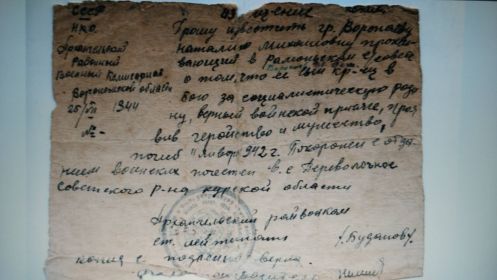 СССР
НКО
Архангельский
Районный
Военный Комиссариат
Воронежской области
25/VII 1944
№
Прошу известить гр. Воропаеву
Наталию Михайловну прожи-
вающий в Рамоньском с/совете
о том, что ее сын кр-ец в
бою за социалистическую роди
ну, верный воинской присяге, проя
вив геройство и мужество,
погиб 1942 г. Похоронен с отда
нием воинских почестей в с. Переволочное
Советского р-на Курской области
Архангельский райвоенком
ст. лейтенант /Буданов/
копия с подлинн верна